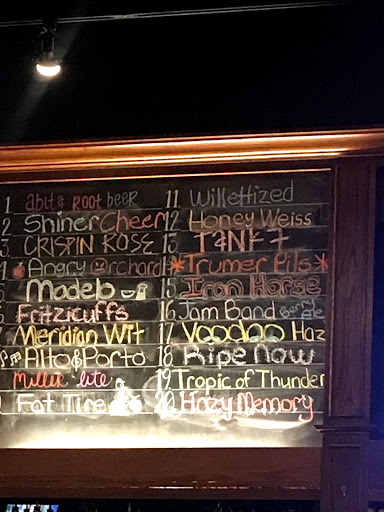 1 abita root beer 11. Willettized
2 Shiner Cheer 12 Honey Weiss
3. CRISPIN ROSE 13 TANK 7
Angry Orchard Trumer Pils
Modelo 15 Iron Horse
Fritzicuffs 16 Jam Band Berry ale
Meridian Wit 17 Voodoo Haz
Alto & Porto 18 Ripe Now
Miller lite 19 Tropic of Thunder
Fat Tire 20 Hazy Memory